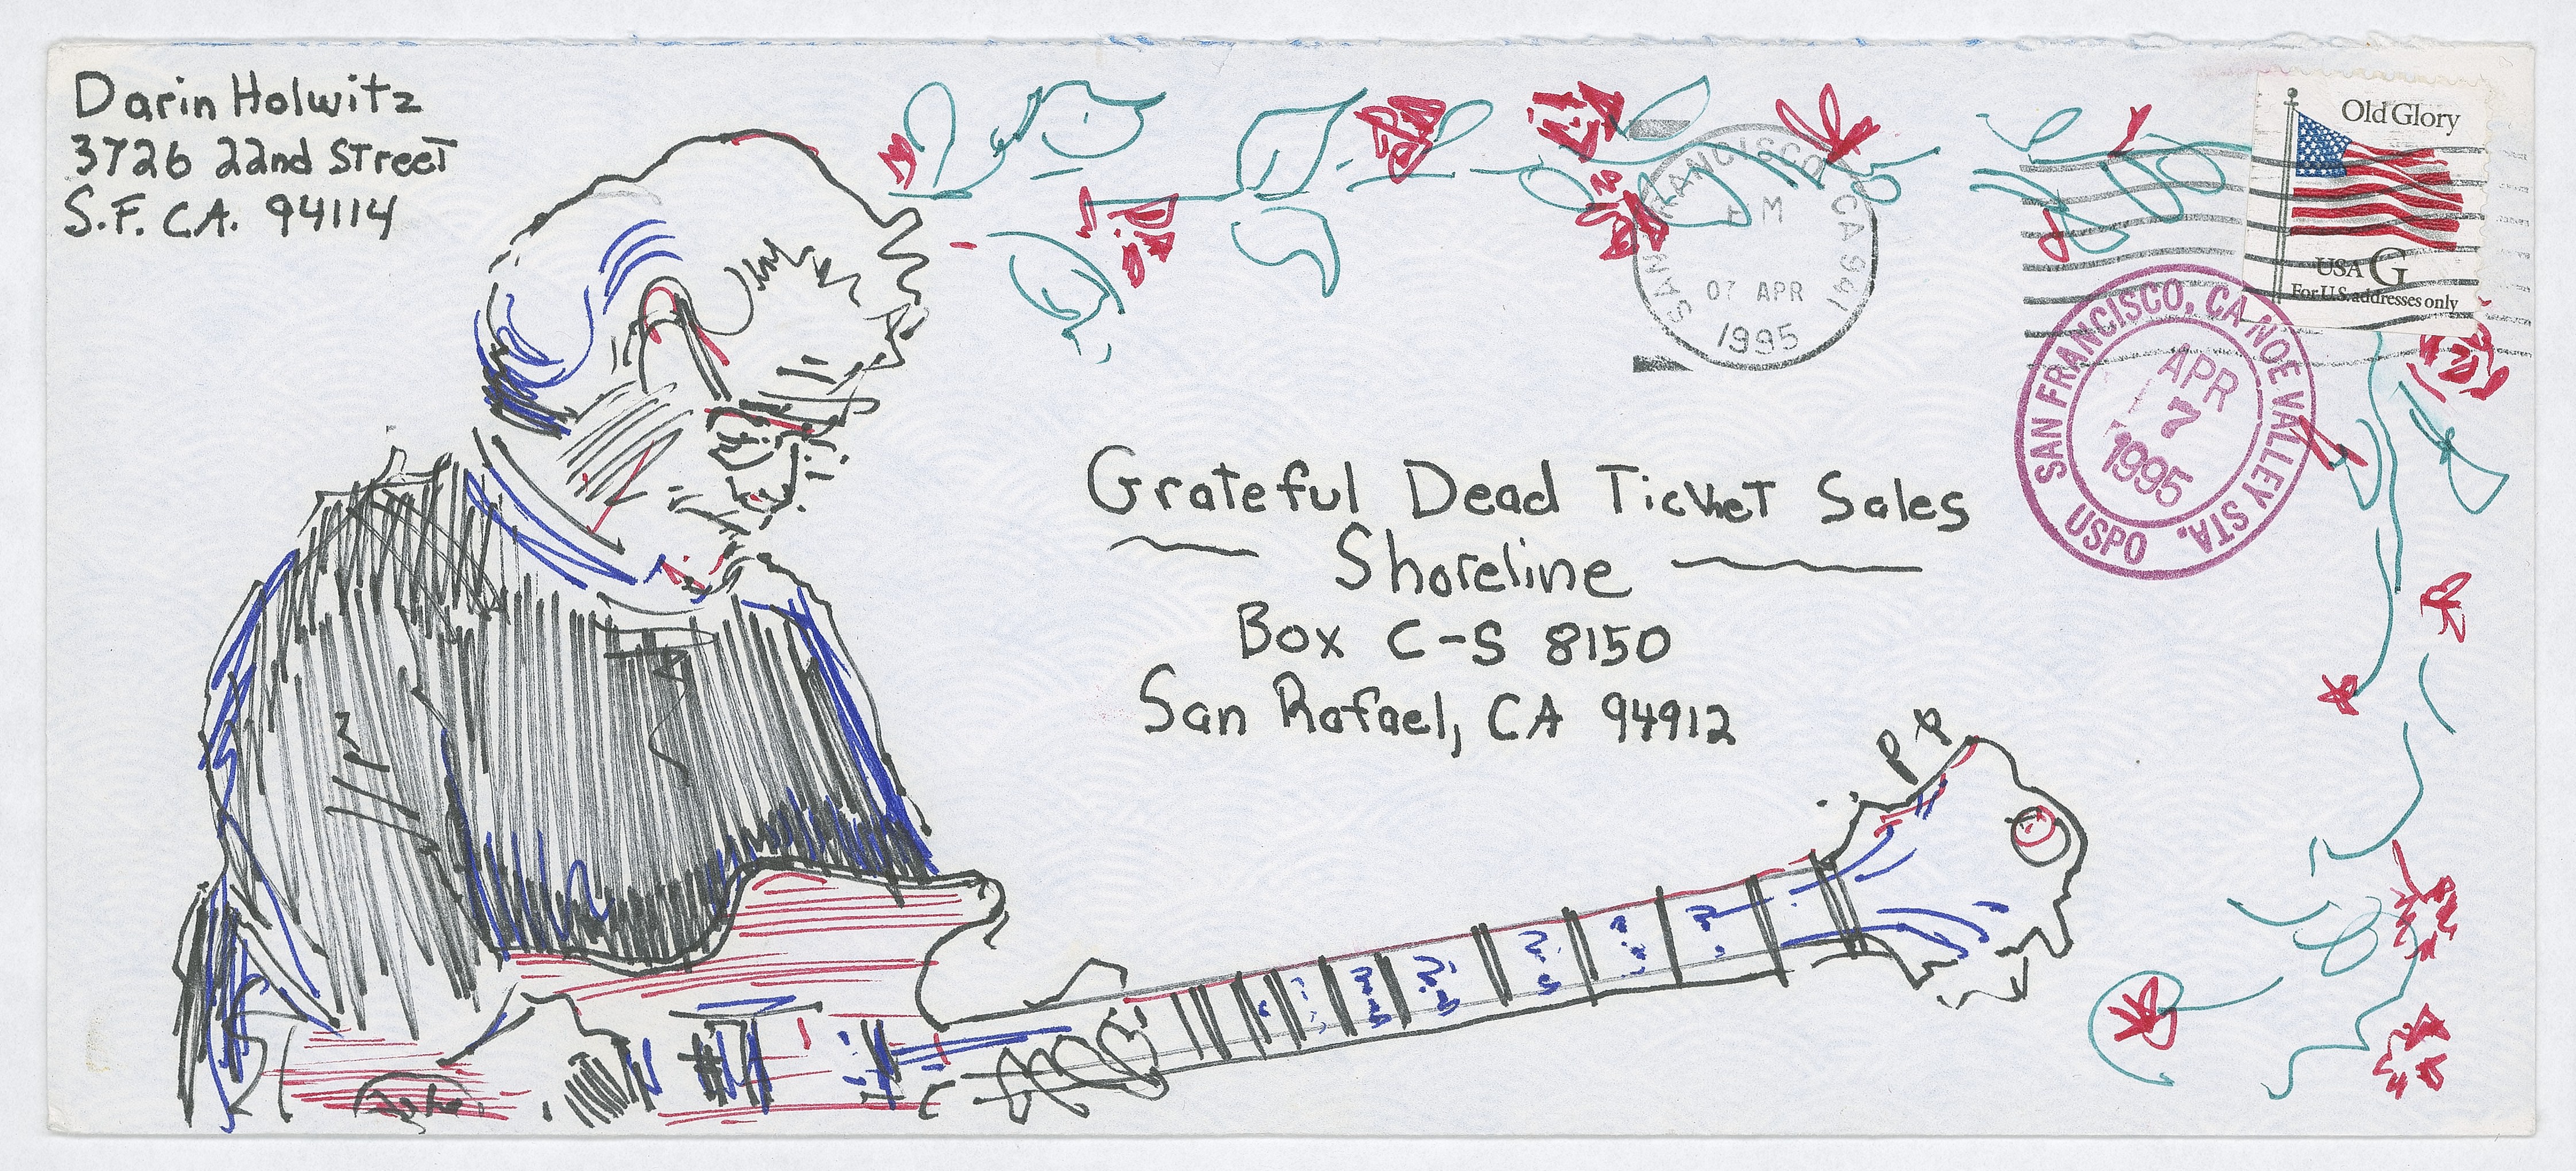 Darin Holwitz
3726 22nd Street
S.F. CA. 94114
Old Glory
USA G
For U.S. addresses only
SAN FRANCISCO CA 941
PM
07 APR
1995
SAN FRANCISCO, CA NOE VALLEY STA.
APR
7
1995
USPO
Grateful Dead Ticket Sales
Shoreline
Box C-S 8150
San Rafael, CA 94912